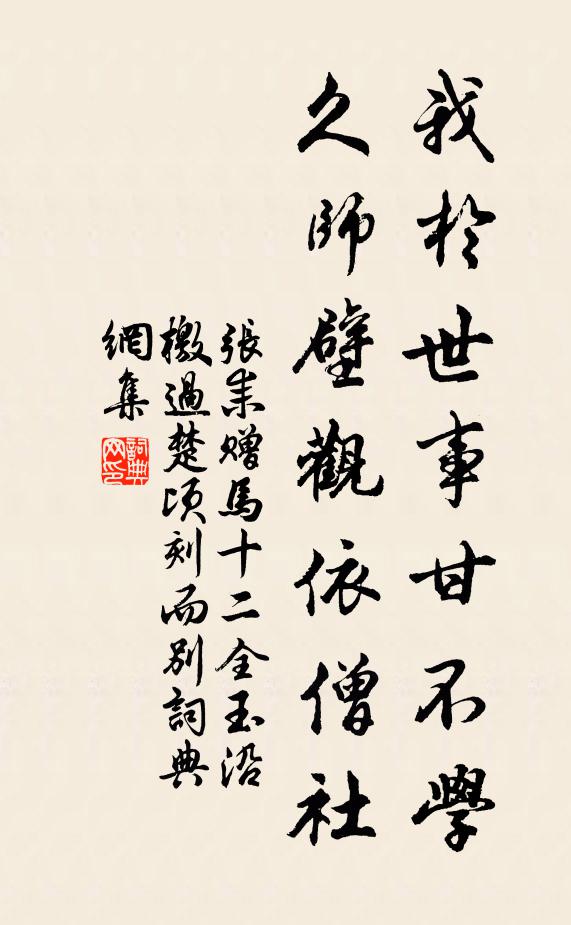 我於世事甘不學
久師壁觀依僧社
張耒贈馬十二全玉沿
檄過楚頃刻而別詞典
網集
詞典
网印